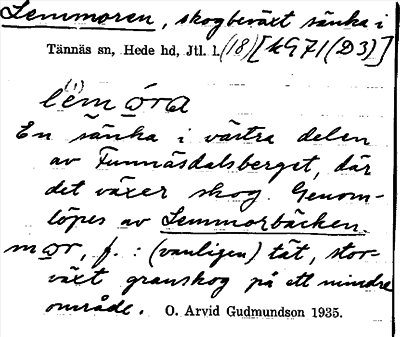 Lemmoren, skogbeväxt sänka i
Tännäs sn, Hede hd, Jtl. l. (18) [kG71(D3)]
En sänka i västra delen
av Funnäsdalsberget, där
det växer skog. Genom-
löpes av Lemmorbäcken.
mor, f. : (vanligen) tät, stor-
växt granskog på ett mindre
område. O. Arvid Gudmundson 1935.